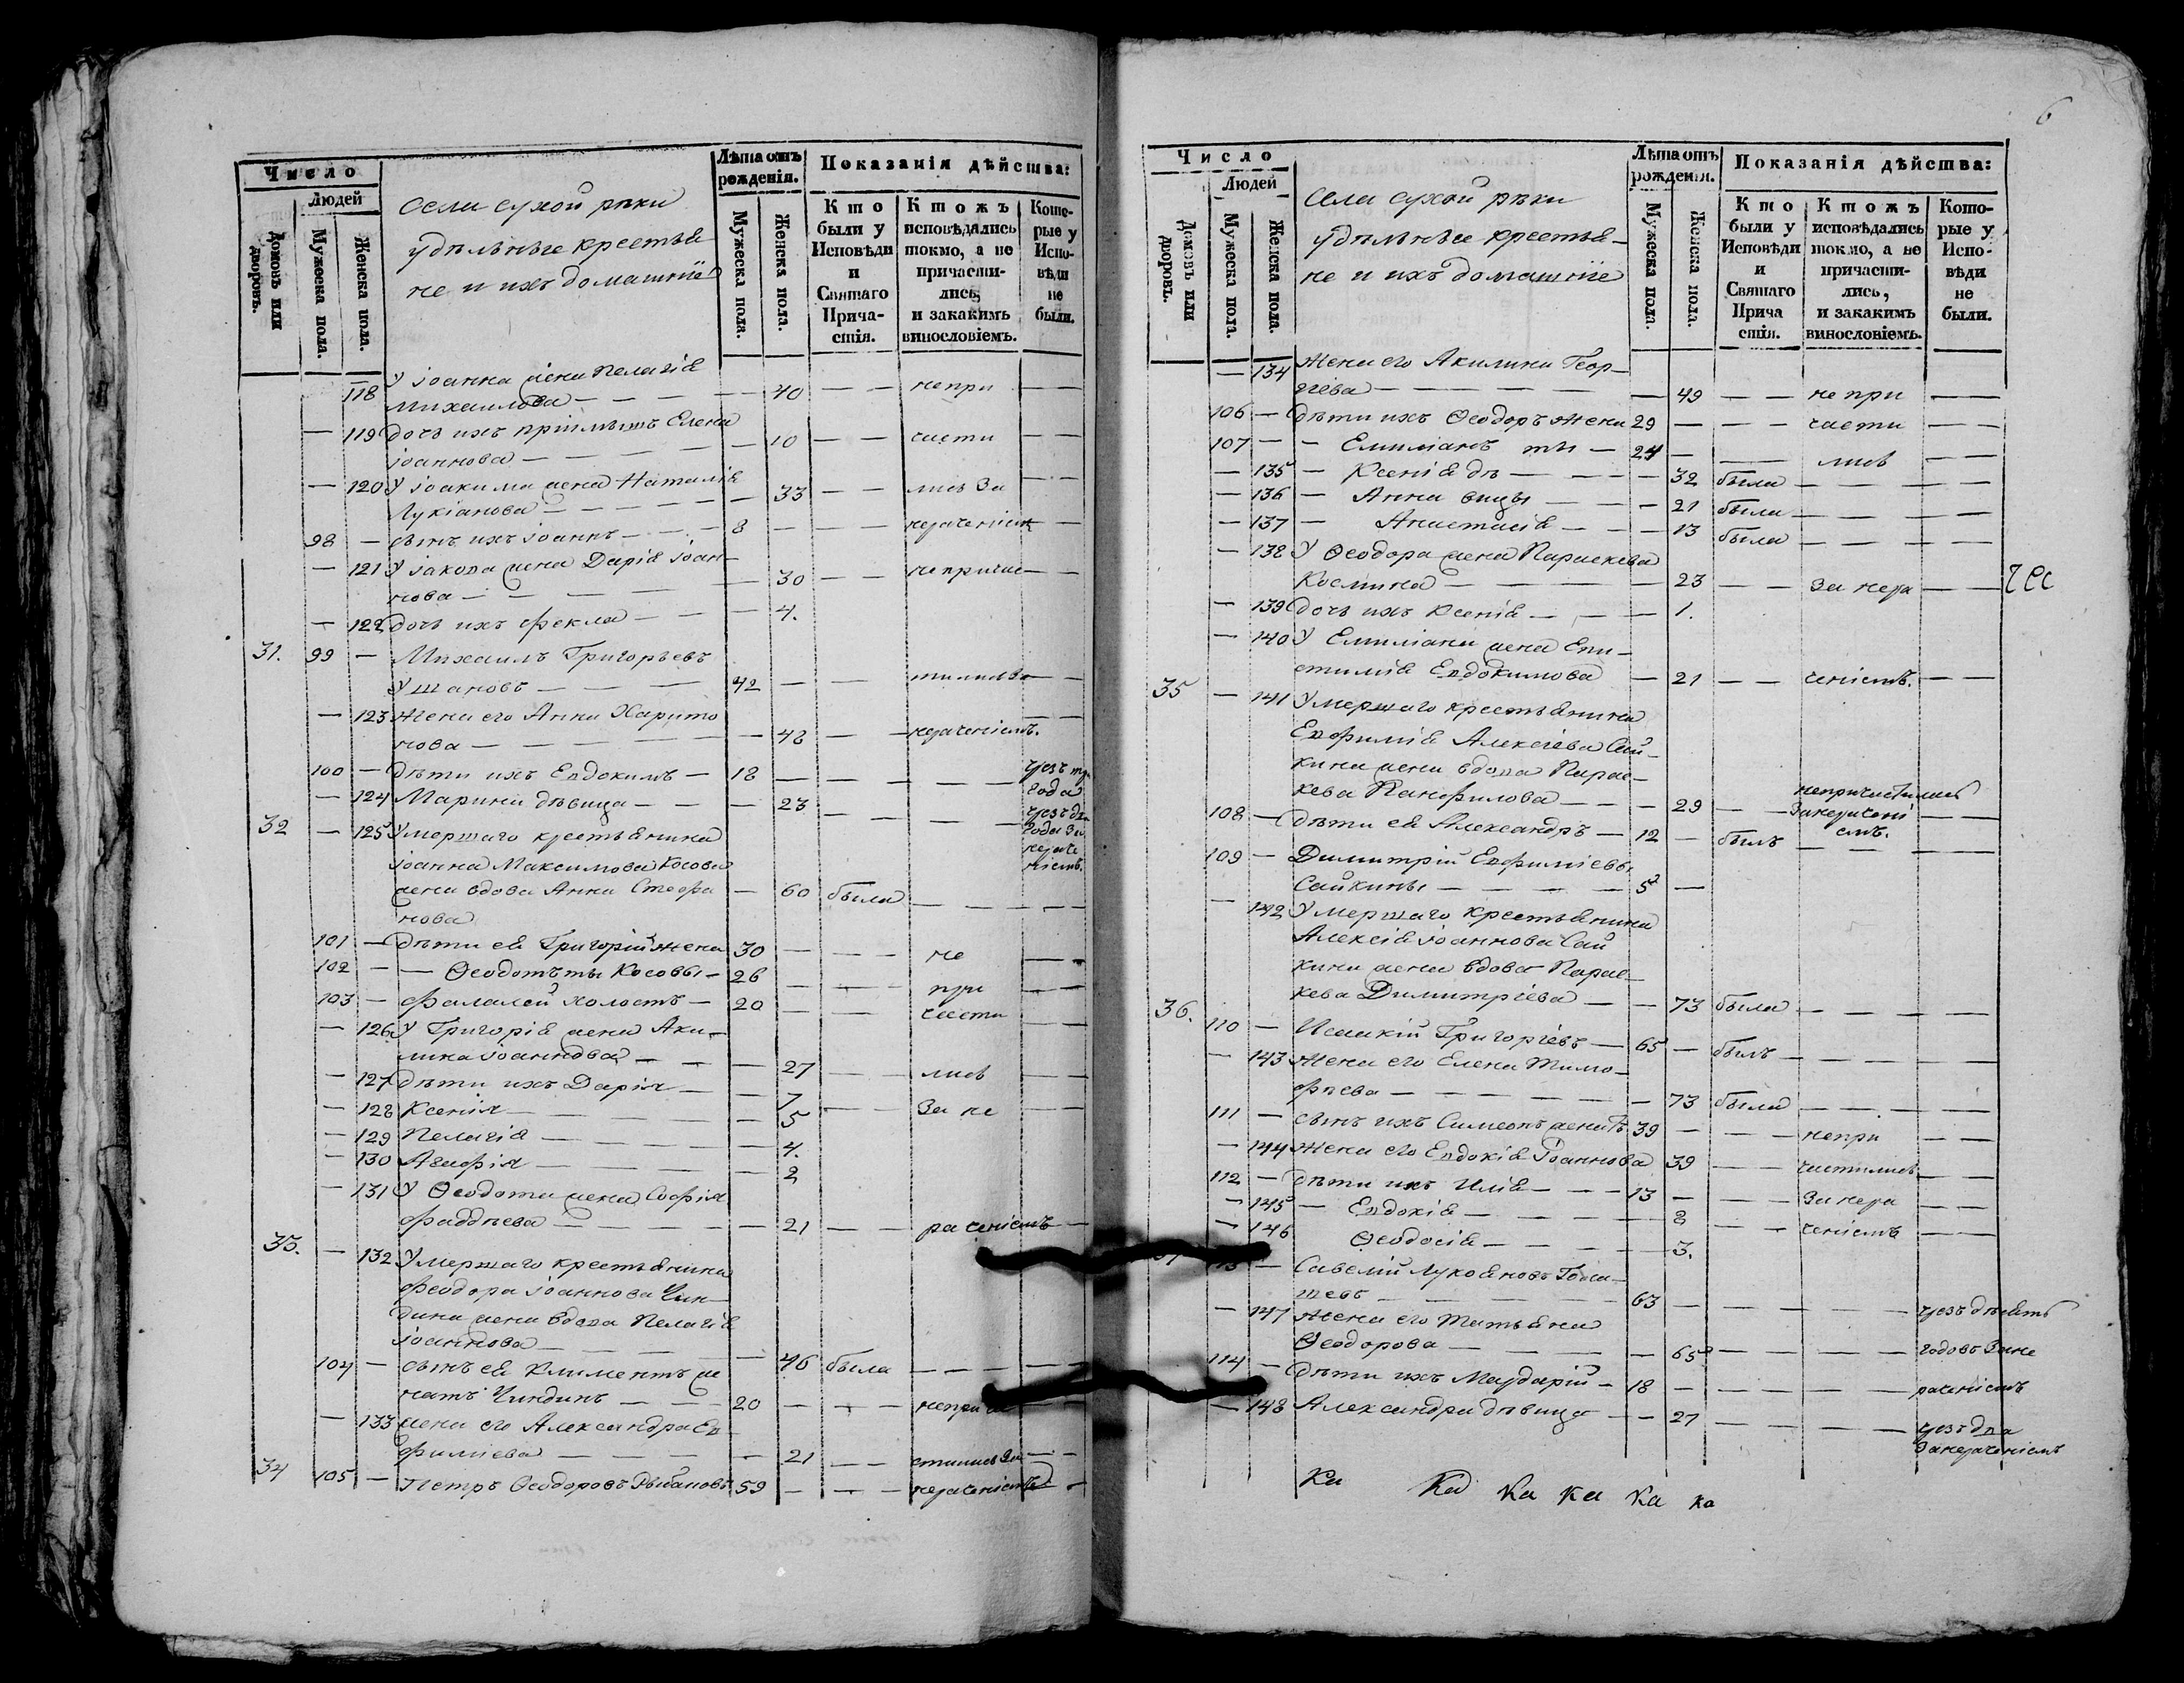 Число
Людей
Домовъ или дворовъ.
Мужеска пола.
Женска пола.
Села сухой рѣки
удѣльныe крестья-
не и ихъ домашніе
Лѣта отъ рожденія.
Мужеска пола.
Женска пола.
Показанія дѣйства:
Кто были у Исповѣди и Святаго Прича-стія.
Ктожъ исповѣдались токмо, а не причасти-лись, и закакимъ винословіемъ.
Кото-рые у Испо-вѣди не были.
118 У іоанна жена Пелагія
Михаилова — 40 — — непри — —
— 119 дочь ихъ пріимышъ Елена
іоаннова — 10 — — части — —
— 120 У іоакима жена Наталія
Лукіанова — 33 — — лись За — —
98 — сынъ ихъ іоаннъ — 8 — — нераченіемъ —
— 121 У іакова жена Дарія іоан-
нова — 30 — — непричас — —
— 122 дочь ихъ Фекла — 4.
31. 99 — Михаилъ Григорьевъ
Ушановъ — 42 — — тились За — —
— 123 жена его Анна Харито
нова — 48 — — нераченіемъ.
100 — дѣти ихъ Евдокимъ — 18 — — — чрезъ три
года
— 124 Марина дѣвица — — 23 — — чрезъ два
года За
нераче
ніемъ.
32 — 125 Умершаго крестьянина
іоанна Максимова Косова
жена вдова Анна Стефа — 60 была — — —
нова
101 — дѣти ея Григорій жена 30 — — не — —
102 — — Ѳеодотъ ты Косовы — 26 — — при — —
103 — Фалалей холостъ — 20 — — части — —
— 126 У Григорія жена Аки-
лина іоаннова — 27 — — лись — —
— 127 дѣти ихъ Дарія — 7 — — За не — —
— 128 Ксенія — 5
— 129 Пелагія — 4.
— 130 Агафія — 2
— 131 У Ѳеодота жена Софія
Фаддѣева — 21 — — раченіемъ —
33. — 132 Умершаго крестьянина
Феодора іоаннова Чин-
дина жена вдова Пелагія
іоаннова — 46 была — — —
104 — сынъ ея Климентъ же
натъ Чиндинъ — 20 — — — неприча
— 133 жена его Александра Ев
фиміева — 21 — — стились За — —
34 105 — Петръ Ѳеодоровъ Рыбановъ 59 — — — нераченіемъ —
6
Число
Людей
Домовъ или дворовъ.
Мужеска пола.
Женска пола.
Села сухой рѣки
удѣльныe крестья-
не и ихъ домашніе
Лѣта отъ рожденія.
Мужеска пола.
Женска пола.
Показанія дѣйства:
Кто были у Исповѣди и Святаго Прича стія.
Ктожъ исповѣдались токмо, а не причасти-лись, и закакимъ винословіемъ.
Кото-рые у Испо-вѣди не были.
— 134 жена его Акилина Геор-
гіева — 49 — — непри — —
106 — дѣти ихъ Ѳеодоръ жена 29 — — — части — —
107 — — Емиліанъ ты — 24 — — лись — —
— 135 — Ксенія дѣ — — 32 была — — —
— 136 — Анна вицы — — 21 была — — —
— 137 — Анастасія — — 13 была — — —
— 138 У Ѳеодора жена Параскева
Космина — 23 — — За нера — —
— 139 дочь ихъ Ксенія — 1.
— 140 У Емиліана жена Епи-
стимія Евдокимова — 21 — — ченіемъ. — —
35 — 141 Умершаго крестьянина
Евфимія Алексіева Сай-
кина жена вдова Парас-
кева Панфилова — 29 — непричастилась
Занераченіемъ. — —
108 — дѣти ея Александръ — 12 — былъ — — —
109 — Димитрій Евфиміевы
Сайкины — 5 —
— 142 Умершаго крестьянина
Алексія іоаннова Сай
кина жена вдова Парас-
кева Димитріева — — 73 была — — —
36. 110 — Исаакій Григорьевъ — 65 — былъ — — —
— 143 жена его Елена Тимо-
фѣева — 73 была — — —
111 — сынъ ихъ Симеонъ женатъ 39 — — — непри — —
— 144 жена его Евдокія іоаннова 39 — — частились — —
112 — дѣти ихъ Илія — 13 — — — За нера — —
— 145 — Евдокія — 8 — — ченіемъ — —
— 146 Ѳеодосія — 3.
37 113 — Савелій Лукояновъ
63 — — — чрезъ девять
— 147 жена его Татьяна
Ѳеодорова — 65 — — — годовъ Зане
114 — дѣти ихъ Мардарій — 18 — — — раченіемъ
— 148 Александра дѣвица — — 27 — — — чрезъ два
Занераченіемъ
Ка Ка Ка Ка Ка Ка